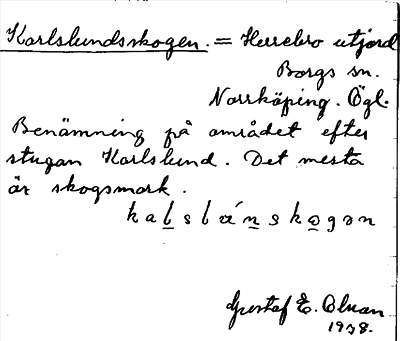 Karlslundsskogen. = Herrebro utjord
Borgs sn.
Norrköping. Ögl.
Benämning på området efter
stugan Karlslund. Det mesta
är skogsmark.
Gustaf E.